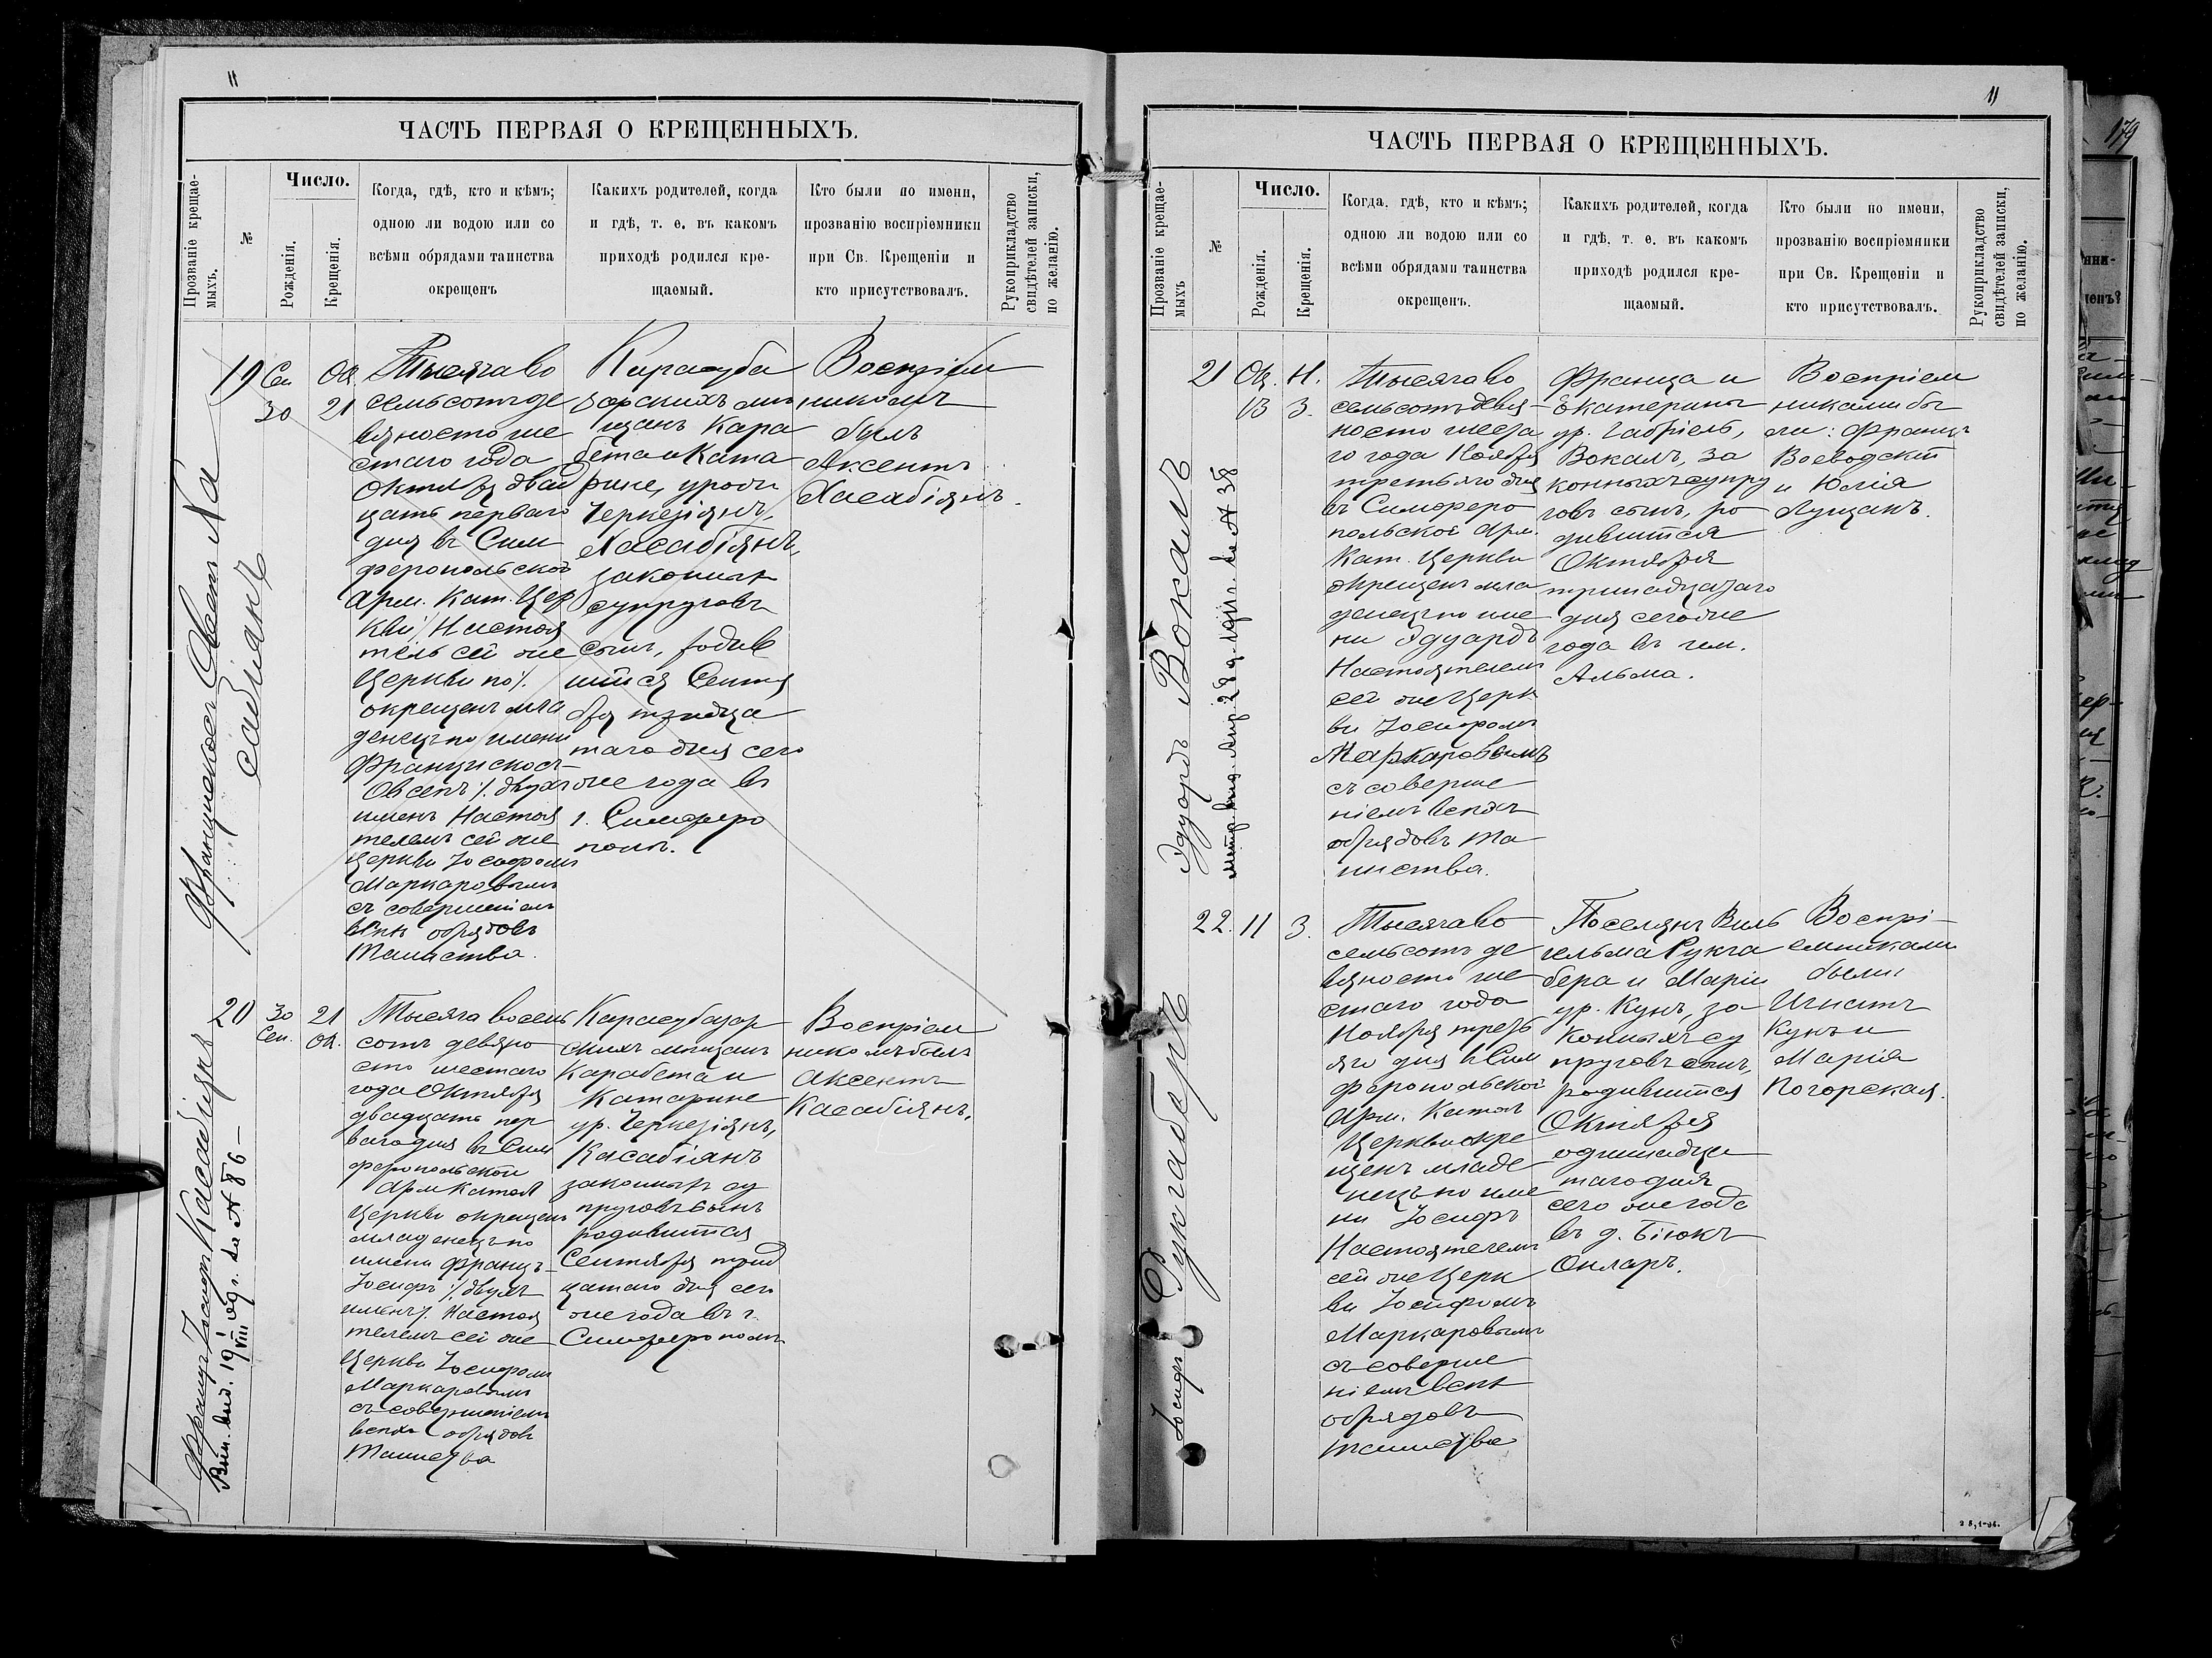 11
ЧАСТЬ ПЕРВАЯ О КРЕЩЕННЫХЪ.
Прозваніе крещае-
мыхъ.
№
Число.
Рожденія.
Крещенія.
Когда, гдѣ, кто и кѣмъ;
одною ли водою или со
всѣми обрядами таинства
окрещенъ
Какихъ родителей, когда
и гдѣ, т. е. въ какомъ
приходѣ родился кре-
щаемый.
Кто были по имени,
прозванію воспріемники
при Св. Крещеніи и
кто присутствовалъ.
Рукоприкладство
свидѣтелей записки,
по желанію.
19
Сен
30
Ок.
21
Тысяча во
семьсотъ де
вяносто ше
стаго года
Октября двад
цать перваго
дня въ Сим
феропольской
Арм. Кат. Цер
кви /Настоя
тель сей же
Церкви по/.
окрещенъ мла
денецъ по имени
Францискосъ-
Овсепъ /. двухъ
именъ Настоя
телемъ сей же
Церкви Іосифомъ
Маркаровымъ
съ совершеніемъ
всѣхъ обрядовъ
Таинства.
Карасуба
зарскихъ мѣ
щанъ Кара
бета и Ката
рине, урож
Черкезіянъ,
Касабіянъ,
законныхъ
супруговъ
сынъ, родив
шійся Сентя
бря тридца
таго дня сего
же года въ
г. Симферо
полѣ.
Воспріем
никомъ
былъ
Аксентъ
Касабіянъ.
20
30
Сен.
21
Ок.
Францъ Іосифъ Касабіянъ
Тысяча восемь
сотъ девяно
сто шестаго
года Октября
двадцать пер
ваго дня въ Сим
феропольской
Арм Катол
Церкви окрещенъ
младенецъ по
имени Францъ-
Іосифъ /. двухъ
именъ/. Настоя
телемъ сей же
Церкви Іосифомъ
Маркаровымъ
съ совершеніемъ
всѣхъ обрядовъ
Таинства
Карасубазар
скихъ мѣщанъ
Карабета и
Катарине
ур. Черкезіянъ,
Касабіянъ
законныхъ су
пруговъ сынъ
родившійся
Сентября трид
цатаго дня сего
же года въ г.
Симферополѣ
Воспріем
никомъ былъ
Аксентъ
Касабіянъ.
11
ЧАСТЬ ПЕРВАЯ О КРЕЩЕННЫХЪ.
Прозваніе крещае-
мыхъ
№
Число.
Рожденія.
Крещенія.
Когда. гдѣ, кто и кѣмъ;
одною ли водою или со
всѣми обрядами таинства
окрещенъ.
Какихъ родителей, когда
и гдѣ. т. е. въ какомъ
приходѣ родился кре-
щаемый.
Кто были по имени,
прозванію воспріемники
при Св. Крещеніи и
кто присутствовалъ.
Рукоприкладство
свидѣтелей записки,
по желанію.
Эдуардъ Вокалъ
21
Ок.
13
Н.
3.
Тысяча во
семьсотъ девя-
носто шеста
го года Ноября
третьяго дня
въ Симферо
польской Арм.
Кат. Церкви
окрещенъ мла
денецъ по име
ни Эдуардъ
Настоятелемъ
сей же Церк
ви Іосифомъ
Маркаровымъ
съ соверше
ніемъ всѣхъ
обрядовъ та
инства.
Франца и
Екатерины
ур. Габріель,
Вокалъ, за
конныхъ супру
говъ сынъ, ро
дившійся
Октября
тринадцатаго
дня сего же
года въ им.
Альма.
Воспріем
никами бы
ли: Францъ
Воеводскій
и Юлія
Лущанъ.
Іосифъ Рукгаберъ
22.
11
3.
Тысяча во
семьсотъ де
вяносто ше
стаго года
Ноября треть
яго дня въ Сим
феропольской
Арм. Катол
Церкви окре
щенъ младе
нецъ по име
ни Іосифъ
Настоятелемъ
сей же Церк
ви Іосифомъ
Маркаровымъ
съ соверше
ніемъ всѣхъ
обрядовъ
таинства
Поселянъ Виль
гельма Рукга
бера и Маріи
ур. Кунъ, за
конныхъ су
пруговъ сынъ,
родившійся
Октября
одиннадца
таго дня
сего же года
въ д. Біюкъ
Онларъ.
Воспрі-
емниками
были
Игнатъ
Кунъ и
Марія
Погорская.
179